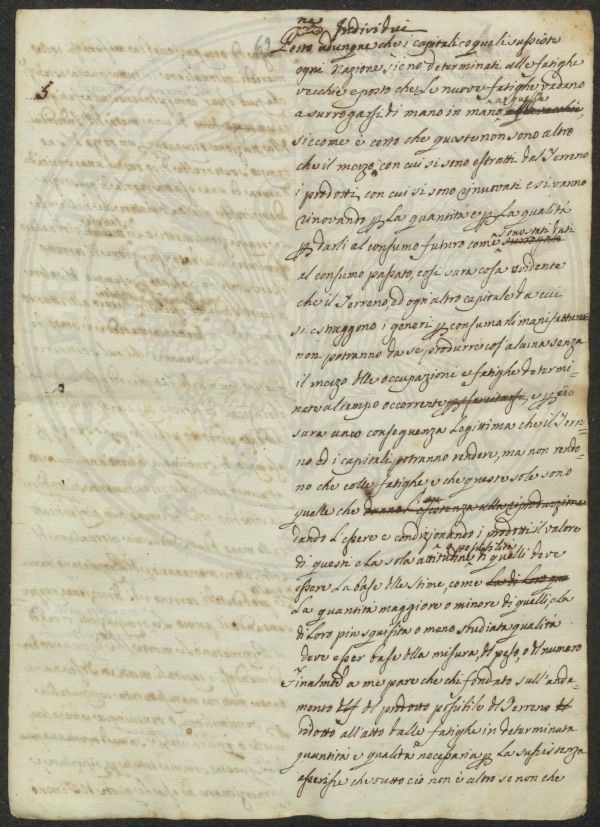 Individui
62
Posto adunque che i capitali co quali sussiste
ogni Nazione sieno determinati alle fatighe
5
vecchie e posto che le nuove fatighe vadano
a surrogarsi di mano in mano a quelle
siccome è certo che queste non sono altro
che il mezzo, con cui si sono estratti dal Terreno
i prodotti, con cui si sono rinuovati e si vanno
rinovando p la quantità e p la qualità
p darli al consumo futuro come sono stati dati
al consumo passato, così sarà cosa evidente
che il Terreno ed ogn altro capitale da cui
si estraggono i generi p consumarli manifatturati
non potranno da se produrre cosa alcuna senza
il mezzo delle occupazioni e fatighe determi-
nate al tempo occorrente, e p ciò
sarà anco conseguenza legittima che il Terre-
no ed i capitali potranno rendere, ma non rendo-
no che colle fatighe e che queste sole sono
quelle che
dando l'essere e condizionando i prodotti il valore
di questi e la sola attitudine e possibilità di quelli deve
essere la base delle stime, come
la quantità maggiore o minore di quelli, e la
di loro più squisita o meno studiata qualità
deve esser base della misura, del peso, o del numero
Finalmte a me pare che chi fondato sull'anda-
mento del prodotto possibile del Terreno
ridotto all'atto dalle fatighe in determinata
quantità e qualità necessaria p la sussistenza
asserisse che tutto ciò non è altro se non che